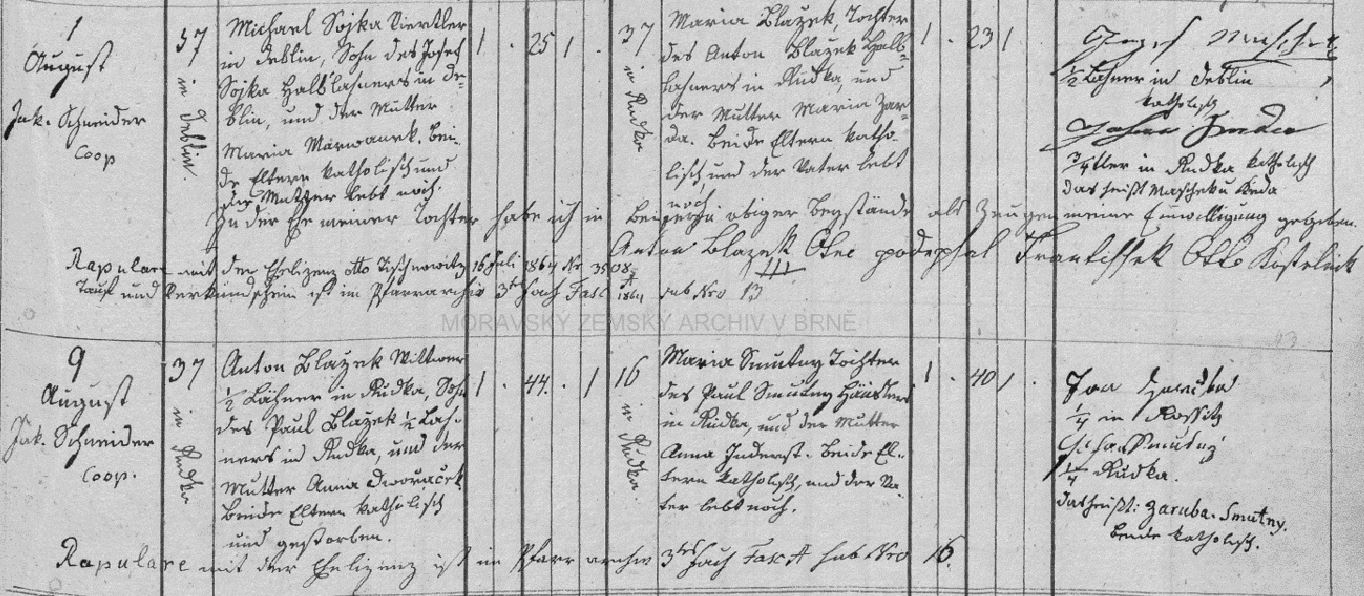 1
August
Jak. Schneider
Coop
37
in Deblin
Michael Sojka Viertler
in Deblin, Sohn des Josef
Sojka Halblahners in De-
blin, und der Mutter
Maria Bei-
de Eltern katholisch und
die Mutter lebt noch.
1 . 25 1 .
37
in Rudka
Maria Blažek Tochter
des Anton Blažek Halb-
lahners in Rudka, und
der Mutter Maria Zar-
da. Beide Eltern katho-
lisch und der Vater lebt
noch.
1 . 23 1
Josef
1/2 Lahner in Deblin
katholisch
3/4tler in Rudka katholisch
das heißt
In der Ehe meiner Tochter habe ich in Beisein obiger Beistände als Zeugen meine Einwilligung gegeben.
Anton Blazek Otec podepsal Frantisshek Otto Kostelnik
Rapulare mit der Ehelizenz dtto Tischnowitz 16 Juli 1864 Nr 3508
Tauf und Verkündschein ist im Pfarrarchiv 3tes Fach Fasc A 1864 sub Nro 13
MORAVSKÝ ZEMSKÝ ARCHIV V BRNĚ
9
August
Jak. Schneider
Coop.
37
in Rudka
Anton Blažek Wittwer
1/2 Lahner in Rudka, Sohn
des Paul Blažek 1/2 Lah-
ners in Rudka, und der
Mutter Anna Dworaček
beide Eltern katholisch
und gestorben.
1 . 44 . 1
16
in Rudka
Maria Smutny Tochter
des Paul Smutny Häuslers
in Rudka, und der Mutter
Anna Beide El-
tern katholisch, und der Va-
ter lebt noch.
1 . 40 1
Jan
1/4 in Rossitz
Smutný
1/4 Rudka.
das heißt: Zaruba. Smutny.
beide katholisch.
Rapulare mit der Ehelizenz ist im Pfarrarchiv 3tes Fach Fasc A sub Nro 16.